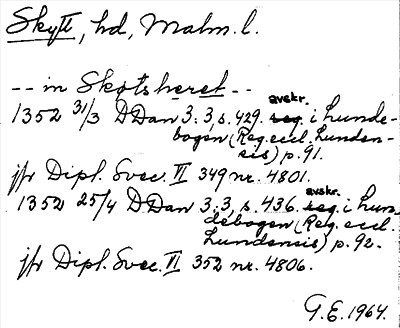 Skytt, hd, Malm. l.
-- in Skøtshæret --
1352 31/3 DDan 3:3, s. 429. avskr. i Lunde-
bogen (Reg. eccl. Lunden-
sis) p. 91.
jfr Dipl. Svec. VI 349 nr. 4801.
1352 25/4 DDan 3:3, s. 436. avskr. i Lun-
debogen (Reg. eccl.
Lundensis) p. 92.
jfr Dipl. Svec. VI 352 nr. 4806.
G.E. 1964.